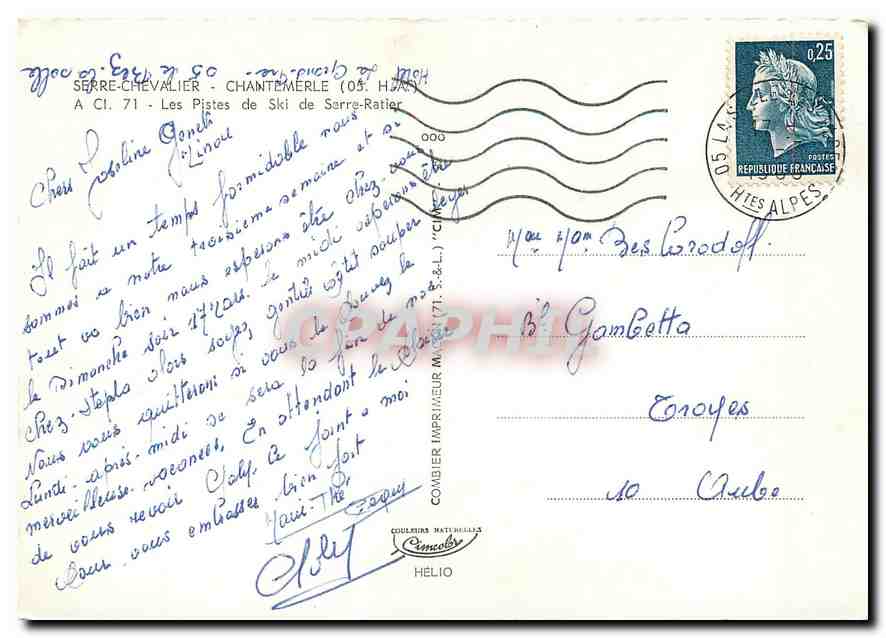 Hotel La Grand. 05 le Bez. La Salle
SERRE-CHEVALIER - CHANTEMERLE (05. H.-A.)
A Cl. 71 - Les Pistes de Ski de Serre-Ratier
Chers Josseline
Il fait un temps formidable nous
sommes a notre troisième semaine et si
tout va bien nous esperons être chez-vous
le Dimanche soir 17 Mars. le midi esperons être
chez. alors soyez gentils souper leger
Nous vous quitterons si vous le pouvez le
Lundi-après-midi se sera la fin de nos
merveilleuse vacances. En attendant le plaisir
de vous revoir Joly. ce joint a moi
Pour vous embrasses bien fort
Marie-Thé
Joly
0,25
POSTES
REPUBLIQUE FRANÇAISE
05 LA S
HTES ALPES
000
Bd Gambetta
Troyes
10 Aube
COMBIER IMPRIMEUR MACON (71. S.-&-L.) "CIM"
CPAPHIL
COULEURS NATURELLES
Cimcolor
HÉLIO